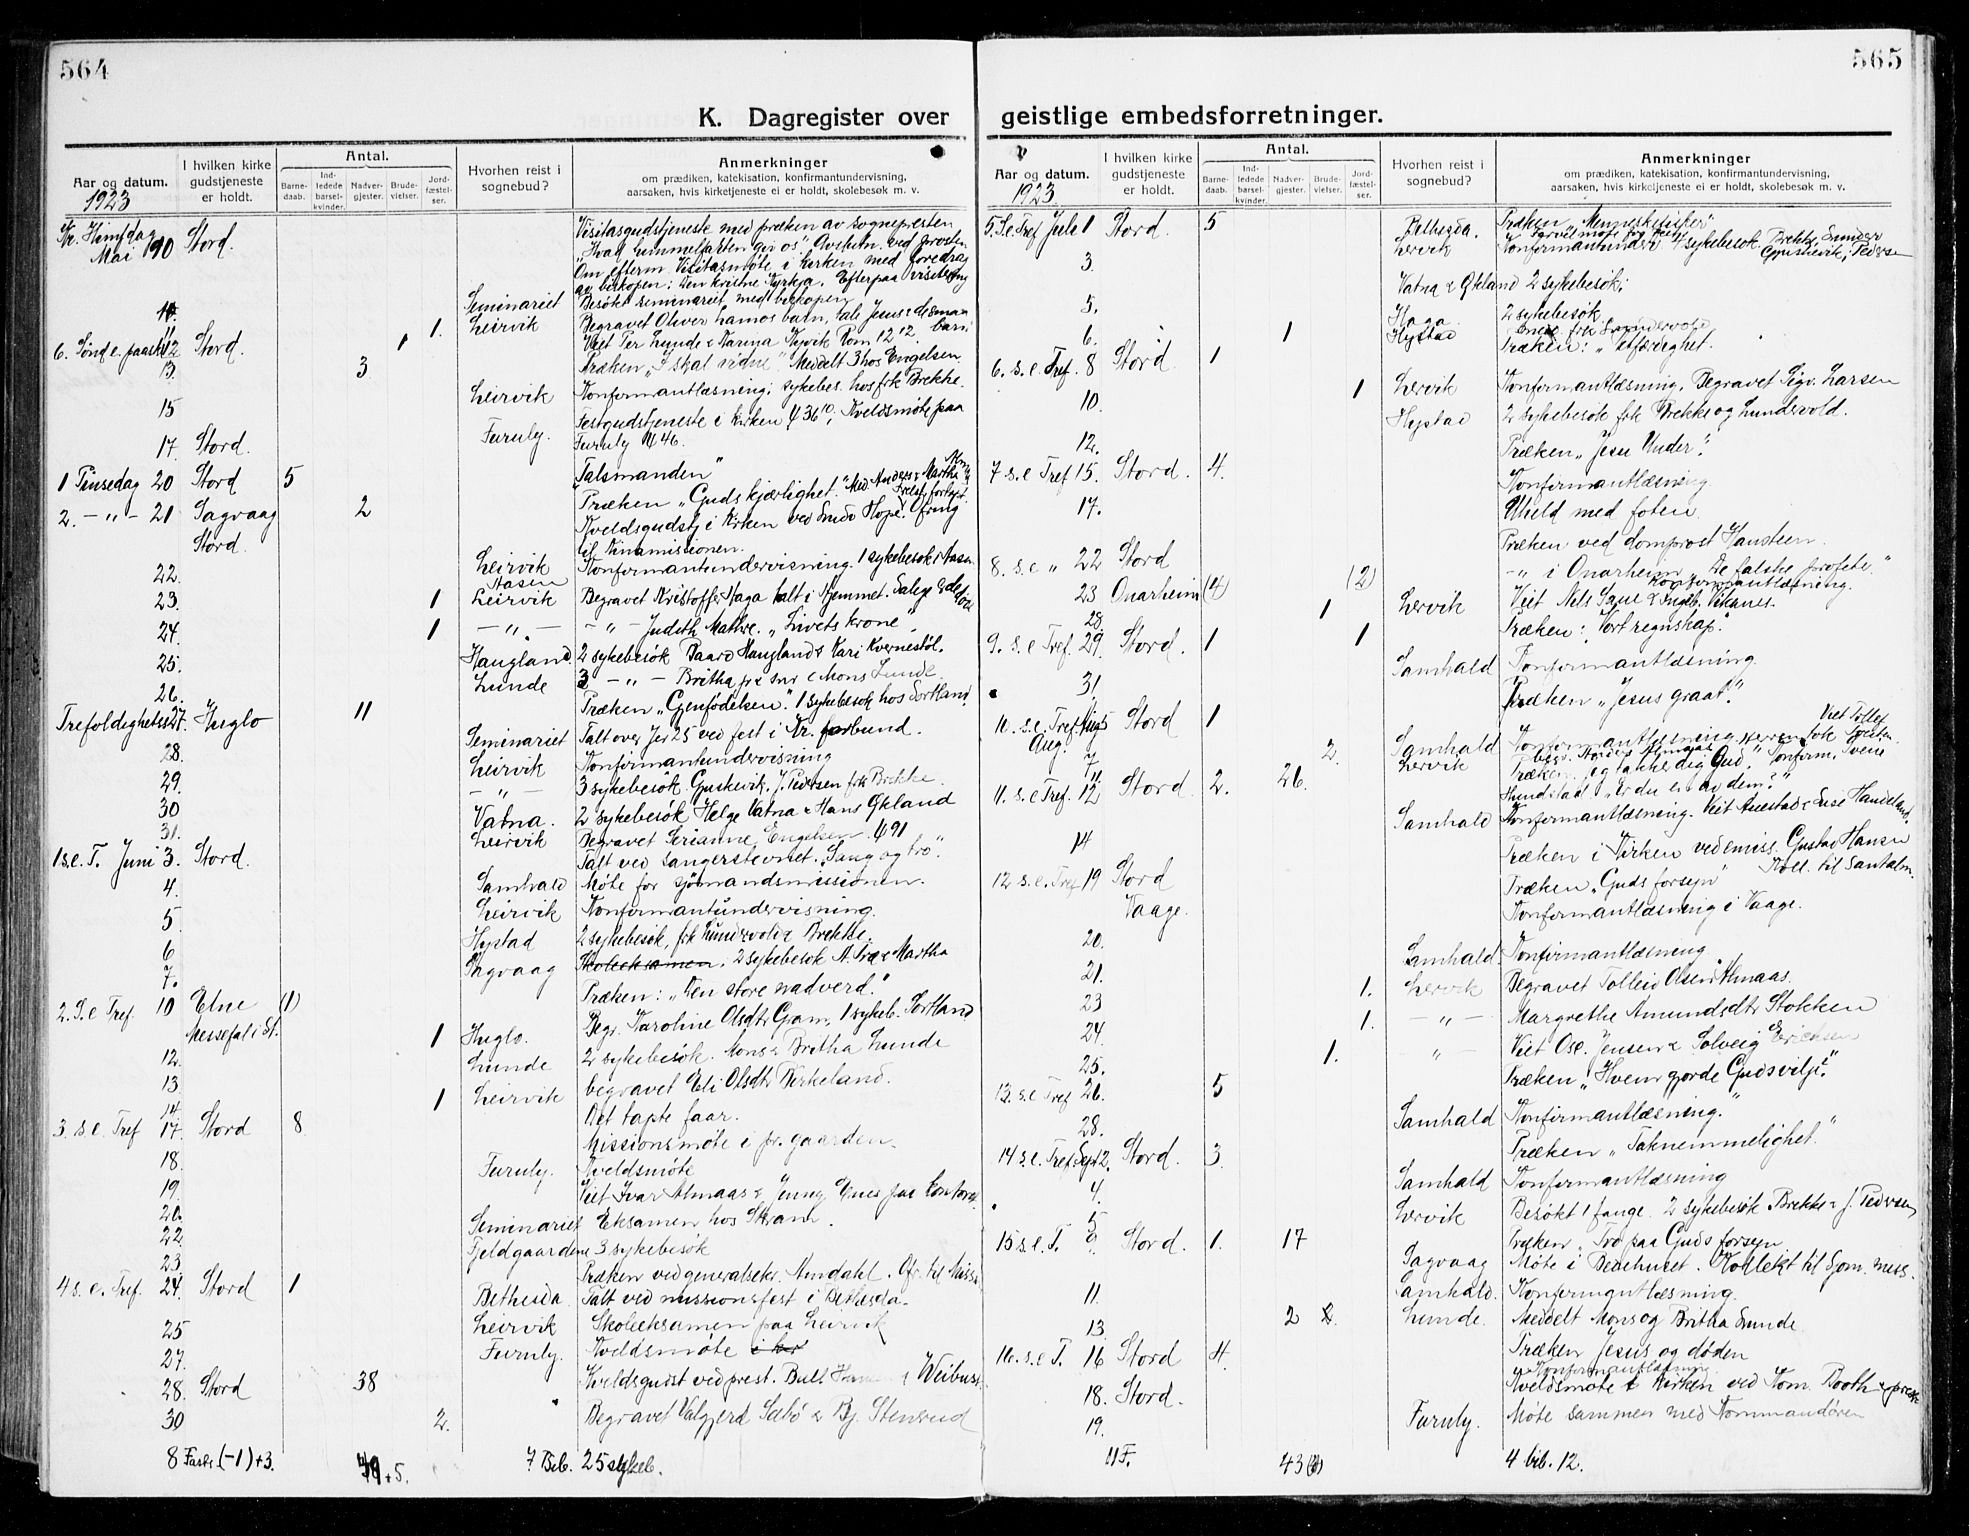 564
K. Dagregister over
Aar og datum.
1923
I hvilken kirke gudstjeneste er holdt.
Antal.
Barne-daab.
Ind-ledede barsel-kvinder.
Nadver-gjester.
Brude-vielser.
Jord-fæstel-ser.
Hvorhen reist i sognebud?
Anmerkninger
om prædiken, katekisation, konfirmantundervisning,
aarsaken, hvis kirketjeneste ei er holdt, skolebesøk m. v.
Kr. Himfdag Mai 10 Stord. Visitasgudstjeneste med præken av sognepresten
"Hvad himmelfarten gir os" Avslutn. ved prosten
Om efterm Visitasmøte i kirken med foredrag
av biskopen: Den kristne Kyrkja. Efterpaa
Seminariet Besøkt seminariet med biskopen
11. 1. Leirvik Begravet Oliver Lamos barn, tale Jesus &
6. Sønd e. paaske 12 Stord. 1 Viet Per Lunde & Marina Vervik Rom 12 12.
13. 3 Præken "I skal vidne" Meddelt 3 hos Engelsen
15 Leirvik Konfirmantlæsning; sykebes. hos frk Brekke.
17. Stord. Furuly. Festgudstjeneste i kirken ψ 36 10; Kveldsmøte paa
Furuly ψ 46.
1 Pinsedag 20 Stord 5 Talsmanden"
2. - " - 21 Sagvaag 2 Præken "Guds kjærlighet."
Stord. Kveldsgudstj i Kirken ved Hope. Ofring
til Kinamissionen.
22. Leirvik Konfirmantundervisning. 1 sykebesøk Aasen
23. 1 Leirvik Begravet Kristoffer Haga talt i Hjemmet. Salige
24. 1 - " - - " - Judith Mathre. "Livets krone"
25. Haugland. 2 sykebesøk Baard Haugland & Kari Kvernestøl.
26. Lunde 3 - " - Britha Mons Lunde
Trefoldighetss 27. Huglo 11 Præken "Gjenfødelsen". 1 sykebesøk hos Sortland.
28. Seminariet Talt over Jer 25 ved fest i Kr. forbund.
29. Leirvik Konfirmantundervisning
30 - " - 3 sykebesøk. Gjuskevik. J. Pedersen frk Brekke.
Vatna. 2 sykebesøk Helge Vatna & Hans Økland
31. Leirvik Begravet Serianne Engelsen. ψ 91
1 s. e. T. Juni 3. Stord. Talt ved sangerstevnet. "Sang og tro".
4. Samhald Møte for sjømandsmissionen.
5 Leirvik Konfirmantundervisning.
6 Hystad 2 sykebesøk, frk Lundevold & Brekke.
7. Sagvaag Skoleeksamen. 2 sykebesøk
2. S. e Tref. 10 Etne (1) Præken: "Den store nadverd."
Messefal i St. 1 Huglo. Begr. Karoline Olsdtr Gram, 1 sykeb. Sortland
12. Lunde 2 sykebesøk. Mons & Britha Lunde
13. 1 Leirvik begravet Eli Olsdtr Kirkeland.
14
3. s. e. Tref 17. Stord 8 Det tapte faar.
18. Missionsmøte i pr. gaarden.
19. Furuly. Kveldsmøte
20. Viet Ivar Almaas & Jenny Enes paa Kontoret
22. Seminariet Eksamen hos Skram.
23. Fjeldgaardene 3 sykebesøk
4 s. e. Tref. 24. Stord 1 Præken ved generalsekr. Amdahl. Ofr. til Miss.
Bethesda Talt ved missionsfest i Bethesda.
25 Leirvik Skoleeksamen paa Leirvik
27. Furuly. Kveldsmøte i
28. Stord 38 Kveldsgudst ved prest. Bull & Weibust
30 2. Begravet Valgjerd Sæbø & Bj. Stensrud
8 (-1) +3. 49 +5. 7 Bib. 25 sykeb.
565
geistlige embedsforretninger.
Aar og datum.
1923
I hvilken kirke gudstjeneste er holdt.
Antal.
Barne-daab.
Ind-ledede barsel-kvinder.
Nadver-gjester.
Brude-vielser.
Jord-fæstel-ser.
Hvorhen reist i sognebud?
Anmerkninger
om prædiken, katekisation, konfirmantundervisning,
aarsaken, hvis kirketjeneste ei er holdt, skolebesøk m. v.
5. S. e Tref Juli 1 Stord. 5 Bethesda. Præken "Menneskefisker"
3. Lervik Konfirmantunderv 4 sykebesøk. Brekke, Gjuskevik, Pederse
Vatna & Økland 2 sykebesøk;
5. Haga 2 sykebesøk
6. 1 Hystad
6. s. e. Tref. 8 Stord 1 Præken: "Retfærdighet.
1 Lervik Konfirmantlæsning. Begravet Sigv. Larsen
10. Hystad 2 sykebesøk frk Brekke og Lundevold.
12. Præken "Jesu Under".
7 s. e Tref 15. Stord. 4. Konfirmantlæsning
17. Uheld med foten.
8. s. e " 22 Stord Præken ved domprost Hansteen.
23 Onarheim (4) (2) - " - i Onarheim "De falske profete"
28. 1 Lervik Viet Nels & Ingeb. Vikanes.
9. s. e Tref. 29. Stord. 1 1 Præken: "Vort regnskap".
31. Samhald Konfirmantlæsning.
10. s. e. Tref. Aug 5 Stord 1 Præken "Jesus graat".
Aug. 7 2. Samhald Konfirmantlæsning
11 Lervik
11. s. e Tref. 12 Stord 2. 26. Præken: Jeg takker dig Gud."
"er du en av dem?"
14 Samhald Konfirmantlæsning. Viet
12 s. e. Tref 19 Stord Præken i Kirken ved emiss. Gustav Hansen
Præken "Guds forsyn" Koll. til Santalm.
Vaage. Konfirmantlæsning i Vaage.
20. Samhald Konfirmantlæsning
21. 1. Lervik Begravet Tolleiv Olsen Almaas.
23 1. - " - Margrethe Amundsdtr Stokken
24. 1. " - Viet Osc. Jensen & Solveig Ericksen
25.
13. s. e Tref 26. 5 Præken "Hvem gjorde Guds vilje".
28. Samhald Konfirmantlæsning."
14 s. e. Tref. Sept 2. Stord. 3. Præken "Taknemmelighet."
4. Samhald Konfirmantlæsning
5 Lervik Besøkt 1 fange. 2 sykebesøk. Brekke & J. Pedersen
15 s. e. T. 9. Stord. 1. 17 Præken: Tro paa Guds forsyn
Sagvaag Møte i Bedehuset. Kollekt til Sjøm. miss.
11. Samhald. Konfirmantlæsning.
13. 2 Lunde. Meddelt Mons og Britha Lunde
16. s. e T. 16 Stord 4. Præken Jesus og døden
Konfirmantlæsning
18. Stord. Kveldsmøte i Kirken ved Kom. Booth
19. Furuly. Møte sammen med Kommandøren
11 F. 43 4 bib. 12.